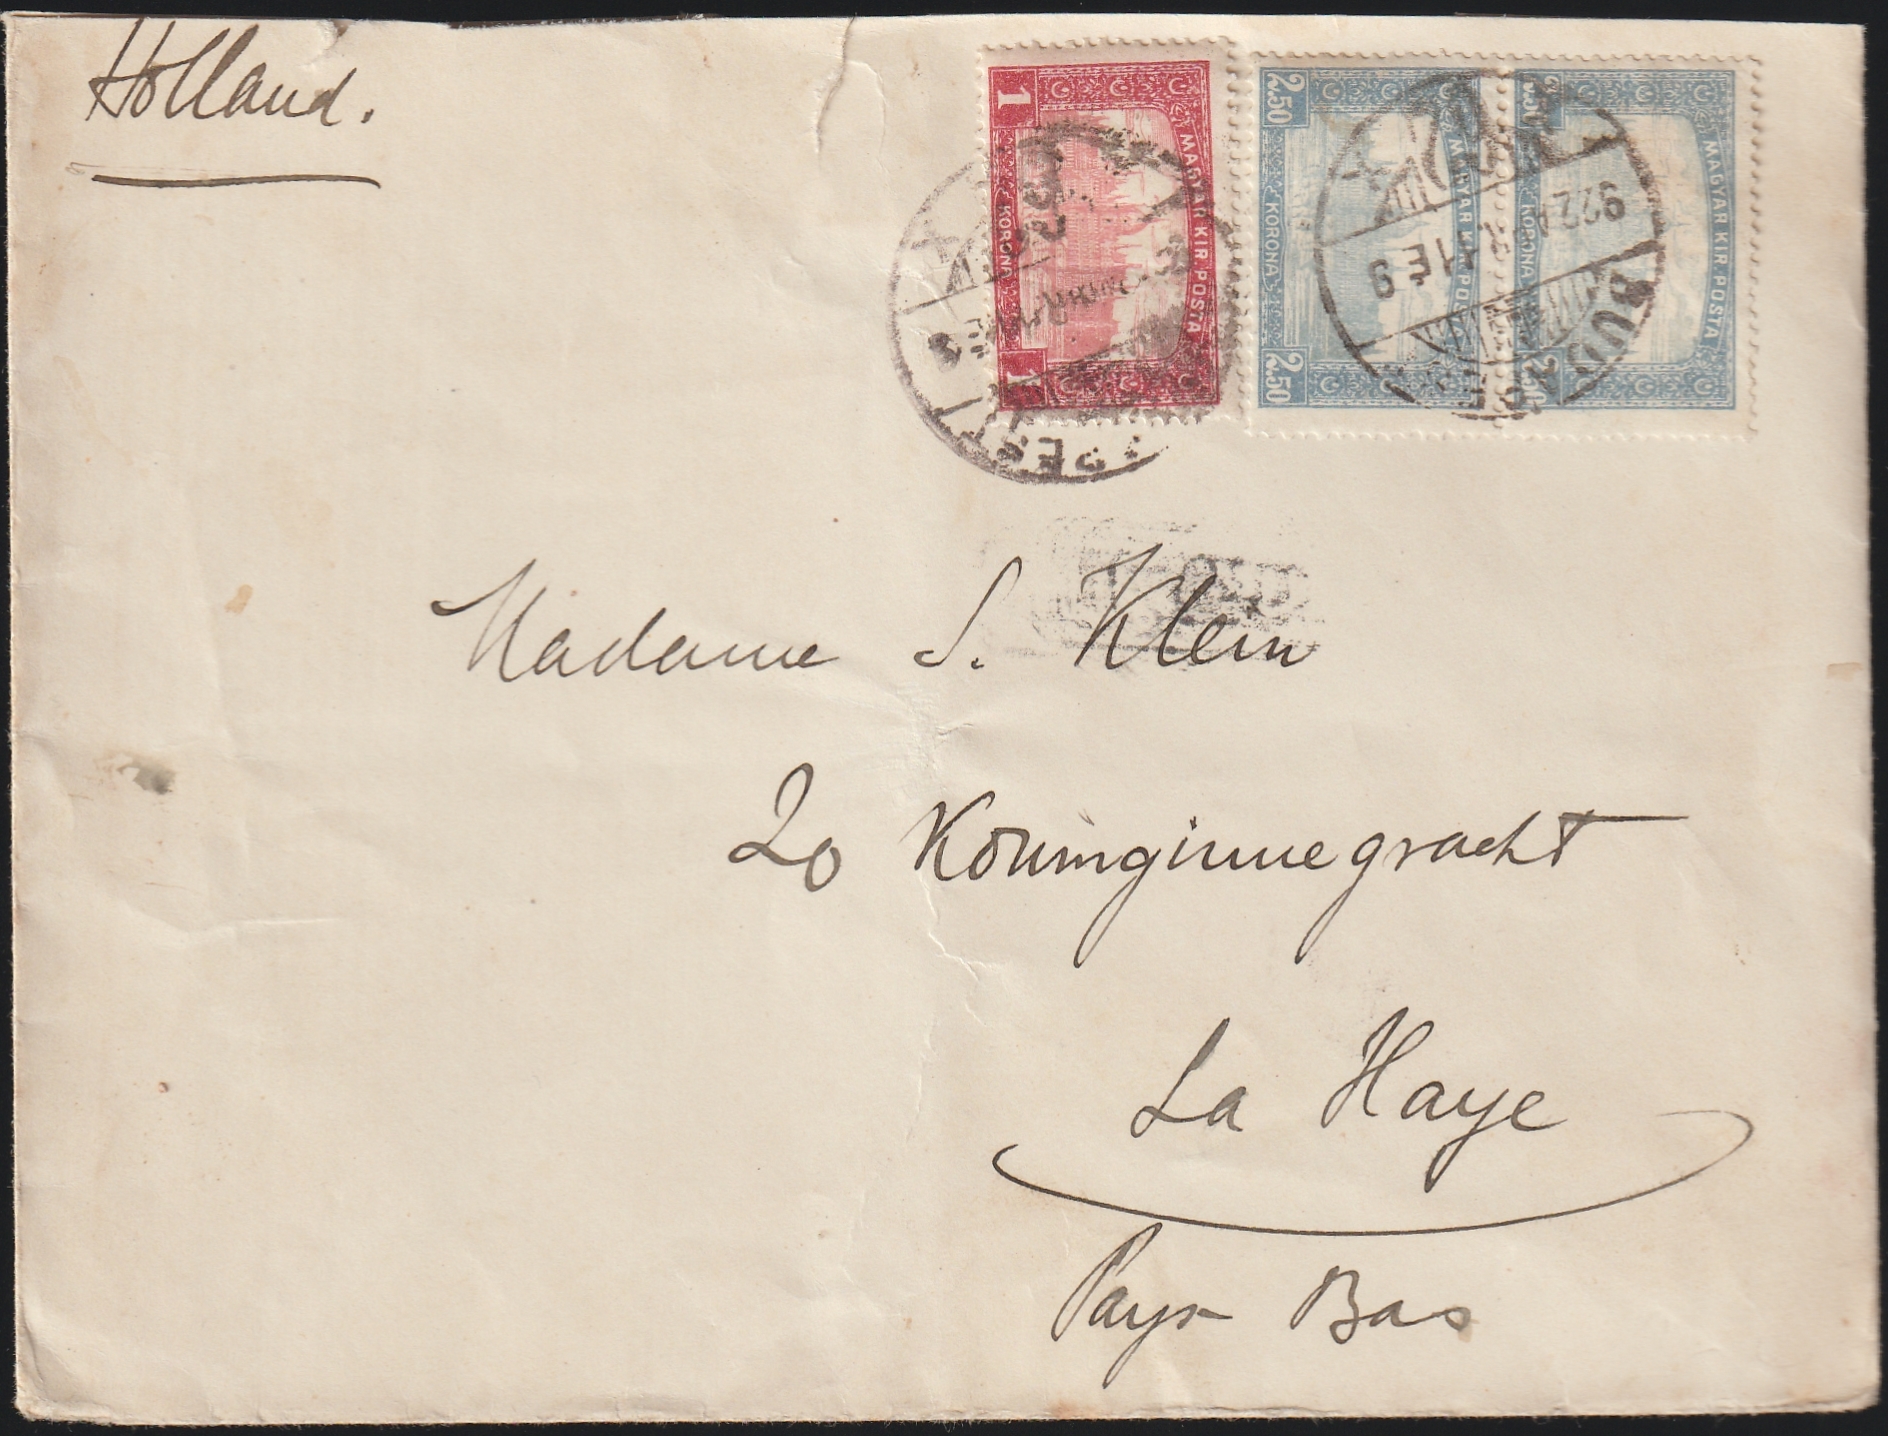 Holland.
1
MAGYAR KIR. POSTA
KORONA
1
2.50
MAGYAR KIR. POSTA
KORONA
2.50
2.50
MAGYAR KIR. POSTA
KORONA
2.50
BUDAPEST
922
11 E 9
PEST
Madame S. Klein
20 Konninginnegracht
La Haye
Pays Bas